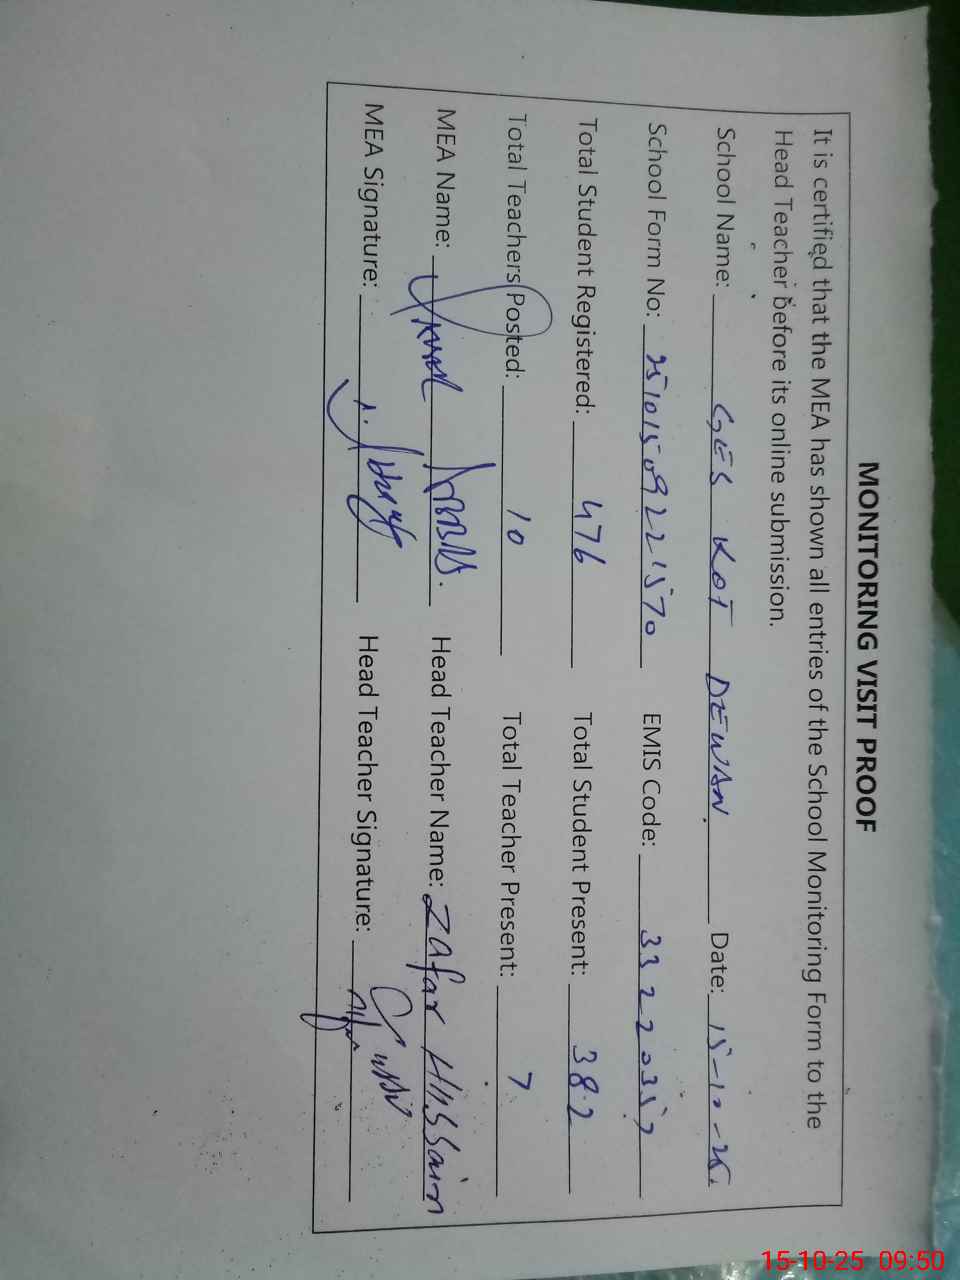 MONITORING VISIT PROOF
It is certified that the MEA has shown all entries of the School Monitoring Form to the
Head Teacher before its online submission.
School Name: GES KOT DEWAN Date: 15-10-25.
School Form No: 25101509221570 EMIS Code: 33220357
Total Student Registered: 476 Total Student Present: 382
Total Teachers Posted: 10 Total Teacher Present: 7
MEA Name: Head Teacher Name: Zafar Hussain
MEA Signature: Head Teacher Signature:
15-10-25 09:50